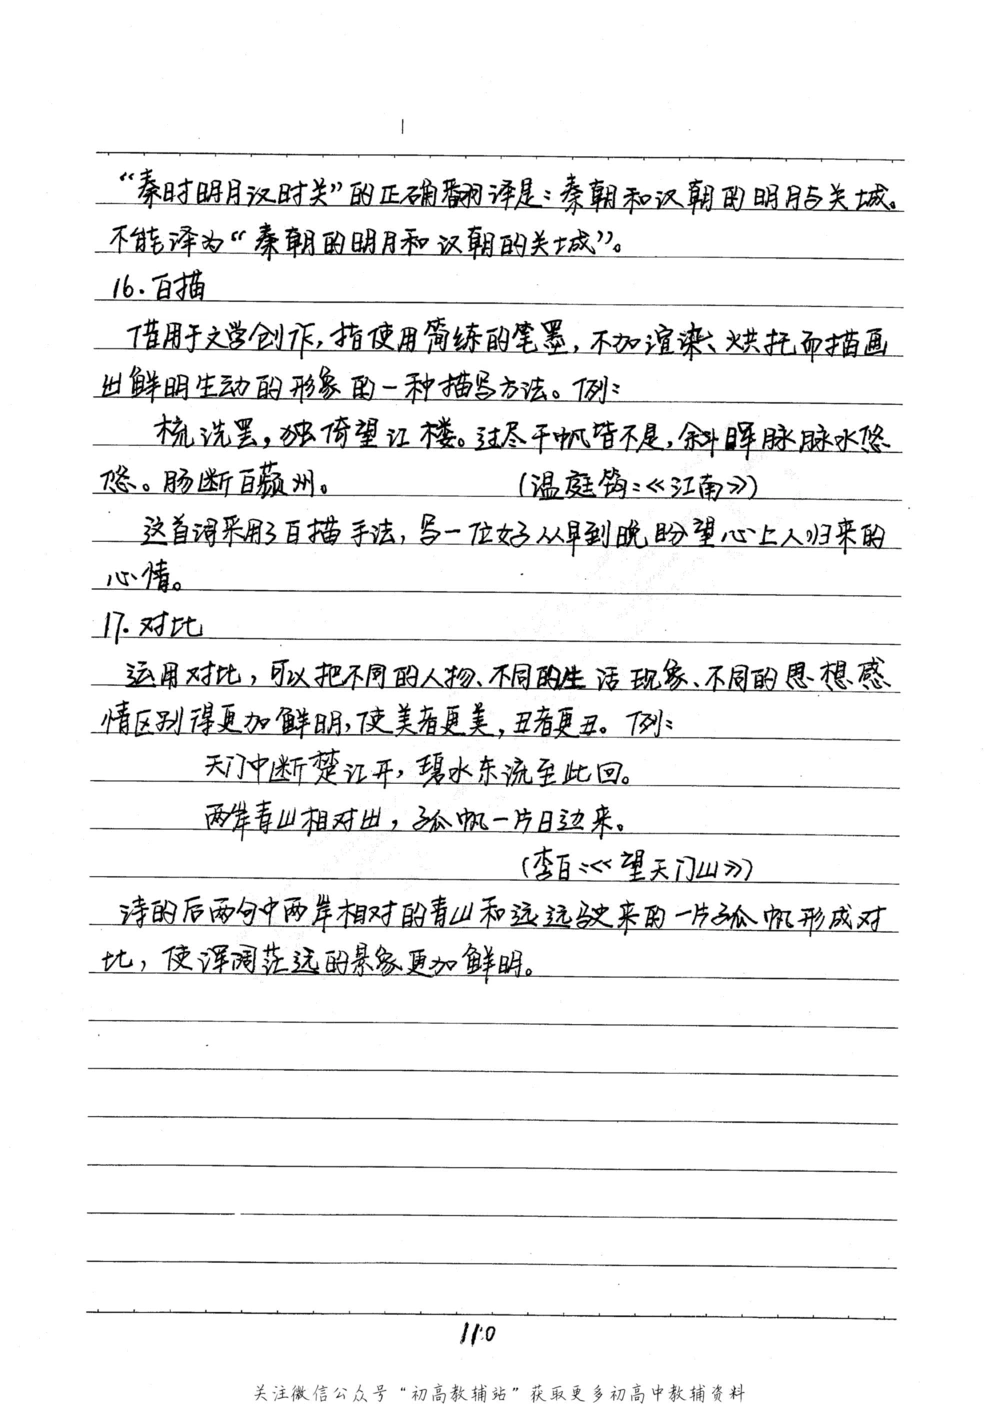 “秦时明月汉时关”的正确翻译是：秦朝和汉朝的明月与关城。
不能译为“秦朝的明月和汉朝的关城”。
16.白描
借用于文学创作，指使用简练的笔墨，不加渲染、烘托而描画
出鲜明生动的形象的一种描写方法。例：
梳洗罢，独倚望江楼。过尽千帆皆不是，斜晖脉脉水悠
悠。肠断白蘋州。（温庭筠：《江南》）
这首词采用了白描手法，写一位女子从早到晚盼望心上人归来的
心情。
17.对比
运用对比，可以把不同的人物、不同的生活现象、不同的思想感
情区别得更加鲜明，使美者更美，丑者更丑。例：
天门中断楚江开，碧水东流至此回。
两岸青山相对出，孤帆一片日边来。
（李白：《望天门山》）
诗的后两句中两岸相对的青山和远远驶来的一片孤帆形成对
比，使浑阔茫远的景象更加鲜明。
110
关注微信公众号“初高教辅站”获取更多初高中教辅资料